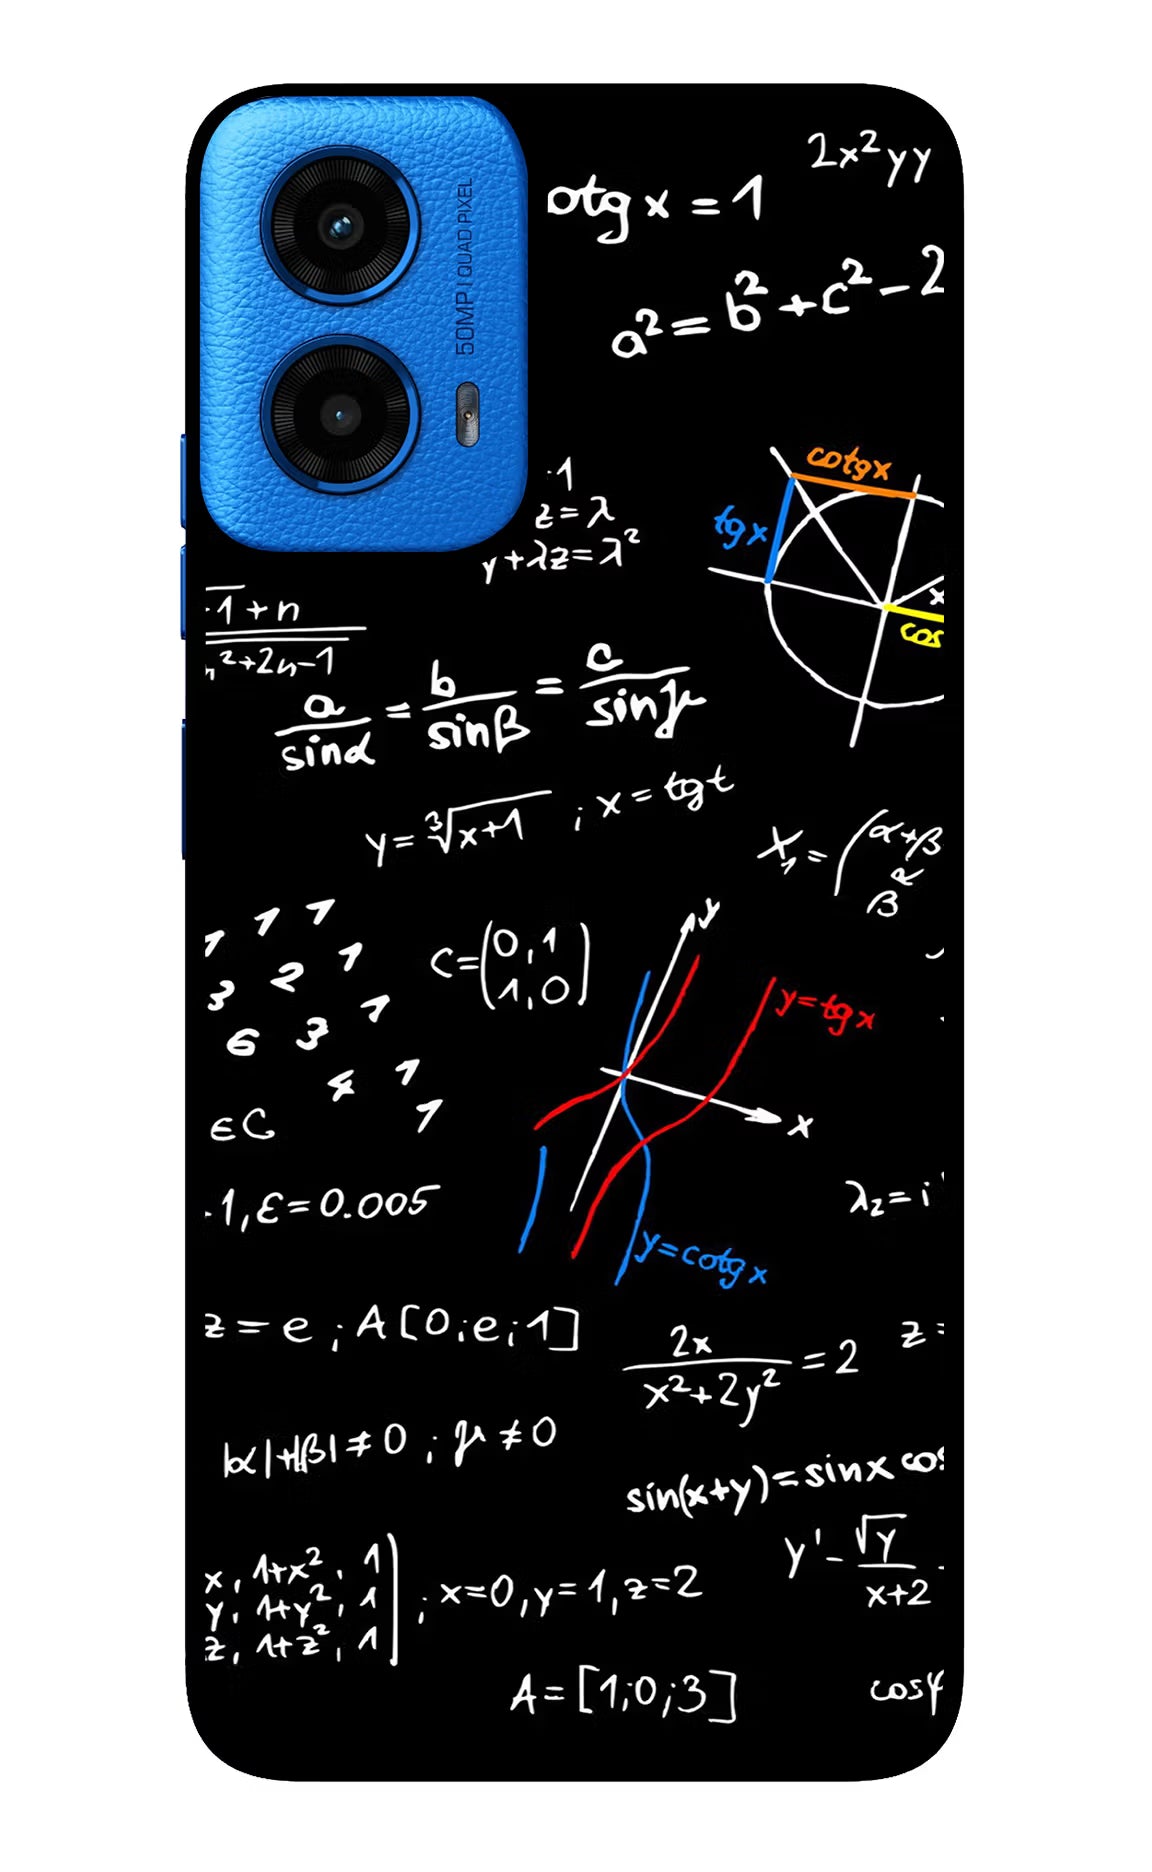 50MP | QUAD PIXEL
2x²yy
otg x = 1
a² = b² + c² - 2
cotgx
tgx
x
cos
·1
z = λ
y + λz = λ²
-1 + n
n²+2n-1
a/sinα = b/sinβ = c/sinγ
y = ∛(x+1) ; x = tgt
X₁ = (α+β
β α
1 1 1
3 2 1
6 3 1
4 1
1
C = (0,1
1,0)
y
y=tgx
x
y=cotgx
∈C
-1, ε=0.005
λ₂=i
z = e ; A[0;e;1]
2x/(x²+2y²) = 2
z =
|α|+|β|≠0 ; γ≠0
sin(x+y)=sinx cos
y' - √y/(x+2) -
x, 1+x², 1
y, 1+y², 1
z, 1+z², 1
; x=0, y=1, z=2
A=[1;0;3]
cosφ